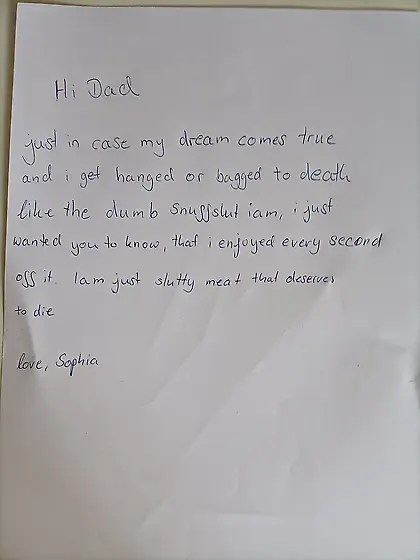 Hi Dad
just in case my dream comes true
and i get hanged or bagged to death
like the dumb snuffslut iam, i just
wanted you to know, that i enjoyed every second
off it. Iam just slutty meat that deserves
to die
love, Sophia